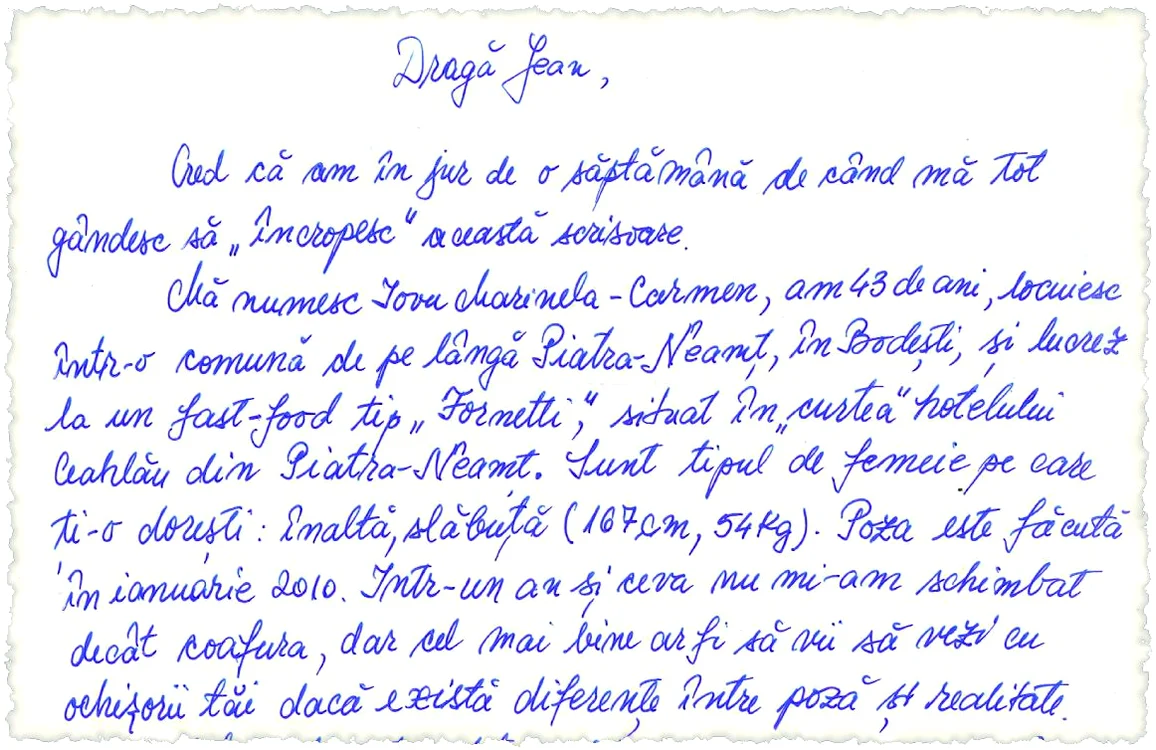 Dragă Jean,
Cred că am în jur de o săptămână de când mă tot
gândesc să „încropesc" această scrisoare.
Mă numesc Iovu Marinela-Carmen, am 43 de ani, locuiesc
într-o comună de pe lângă Piatra-Neamț, în Bodești, și lucrez
la un fast-food tip „Fornetti", situat în „curtea" hotelului
Ceahlău din Piatra-Neamț. Sunt tipul de femeie pe care
ți-o dorești: înaltă, slăbuță (167cm, 54kg). Poza este făcută
în ianuarie 2010. Într-un an și ceva nu mi-am schimbat
decât coafura, dar cel mai bine ar fi să vii să vezi cu
ochișorii tăi dacă există diferențe între poză și realitate.